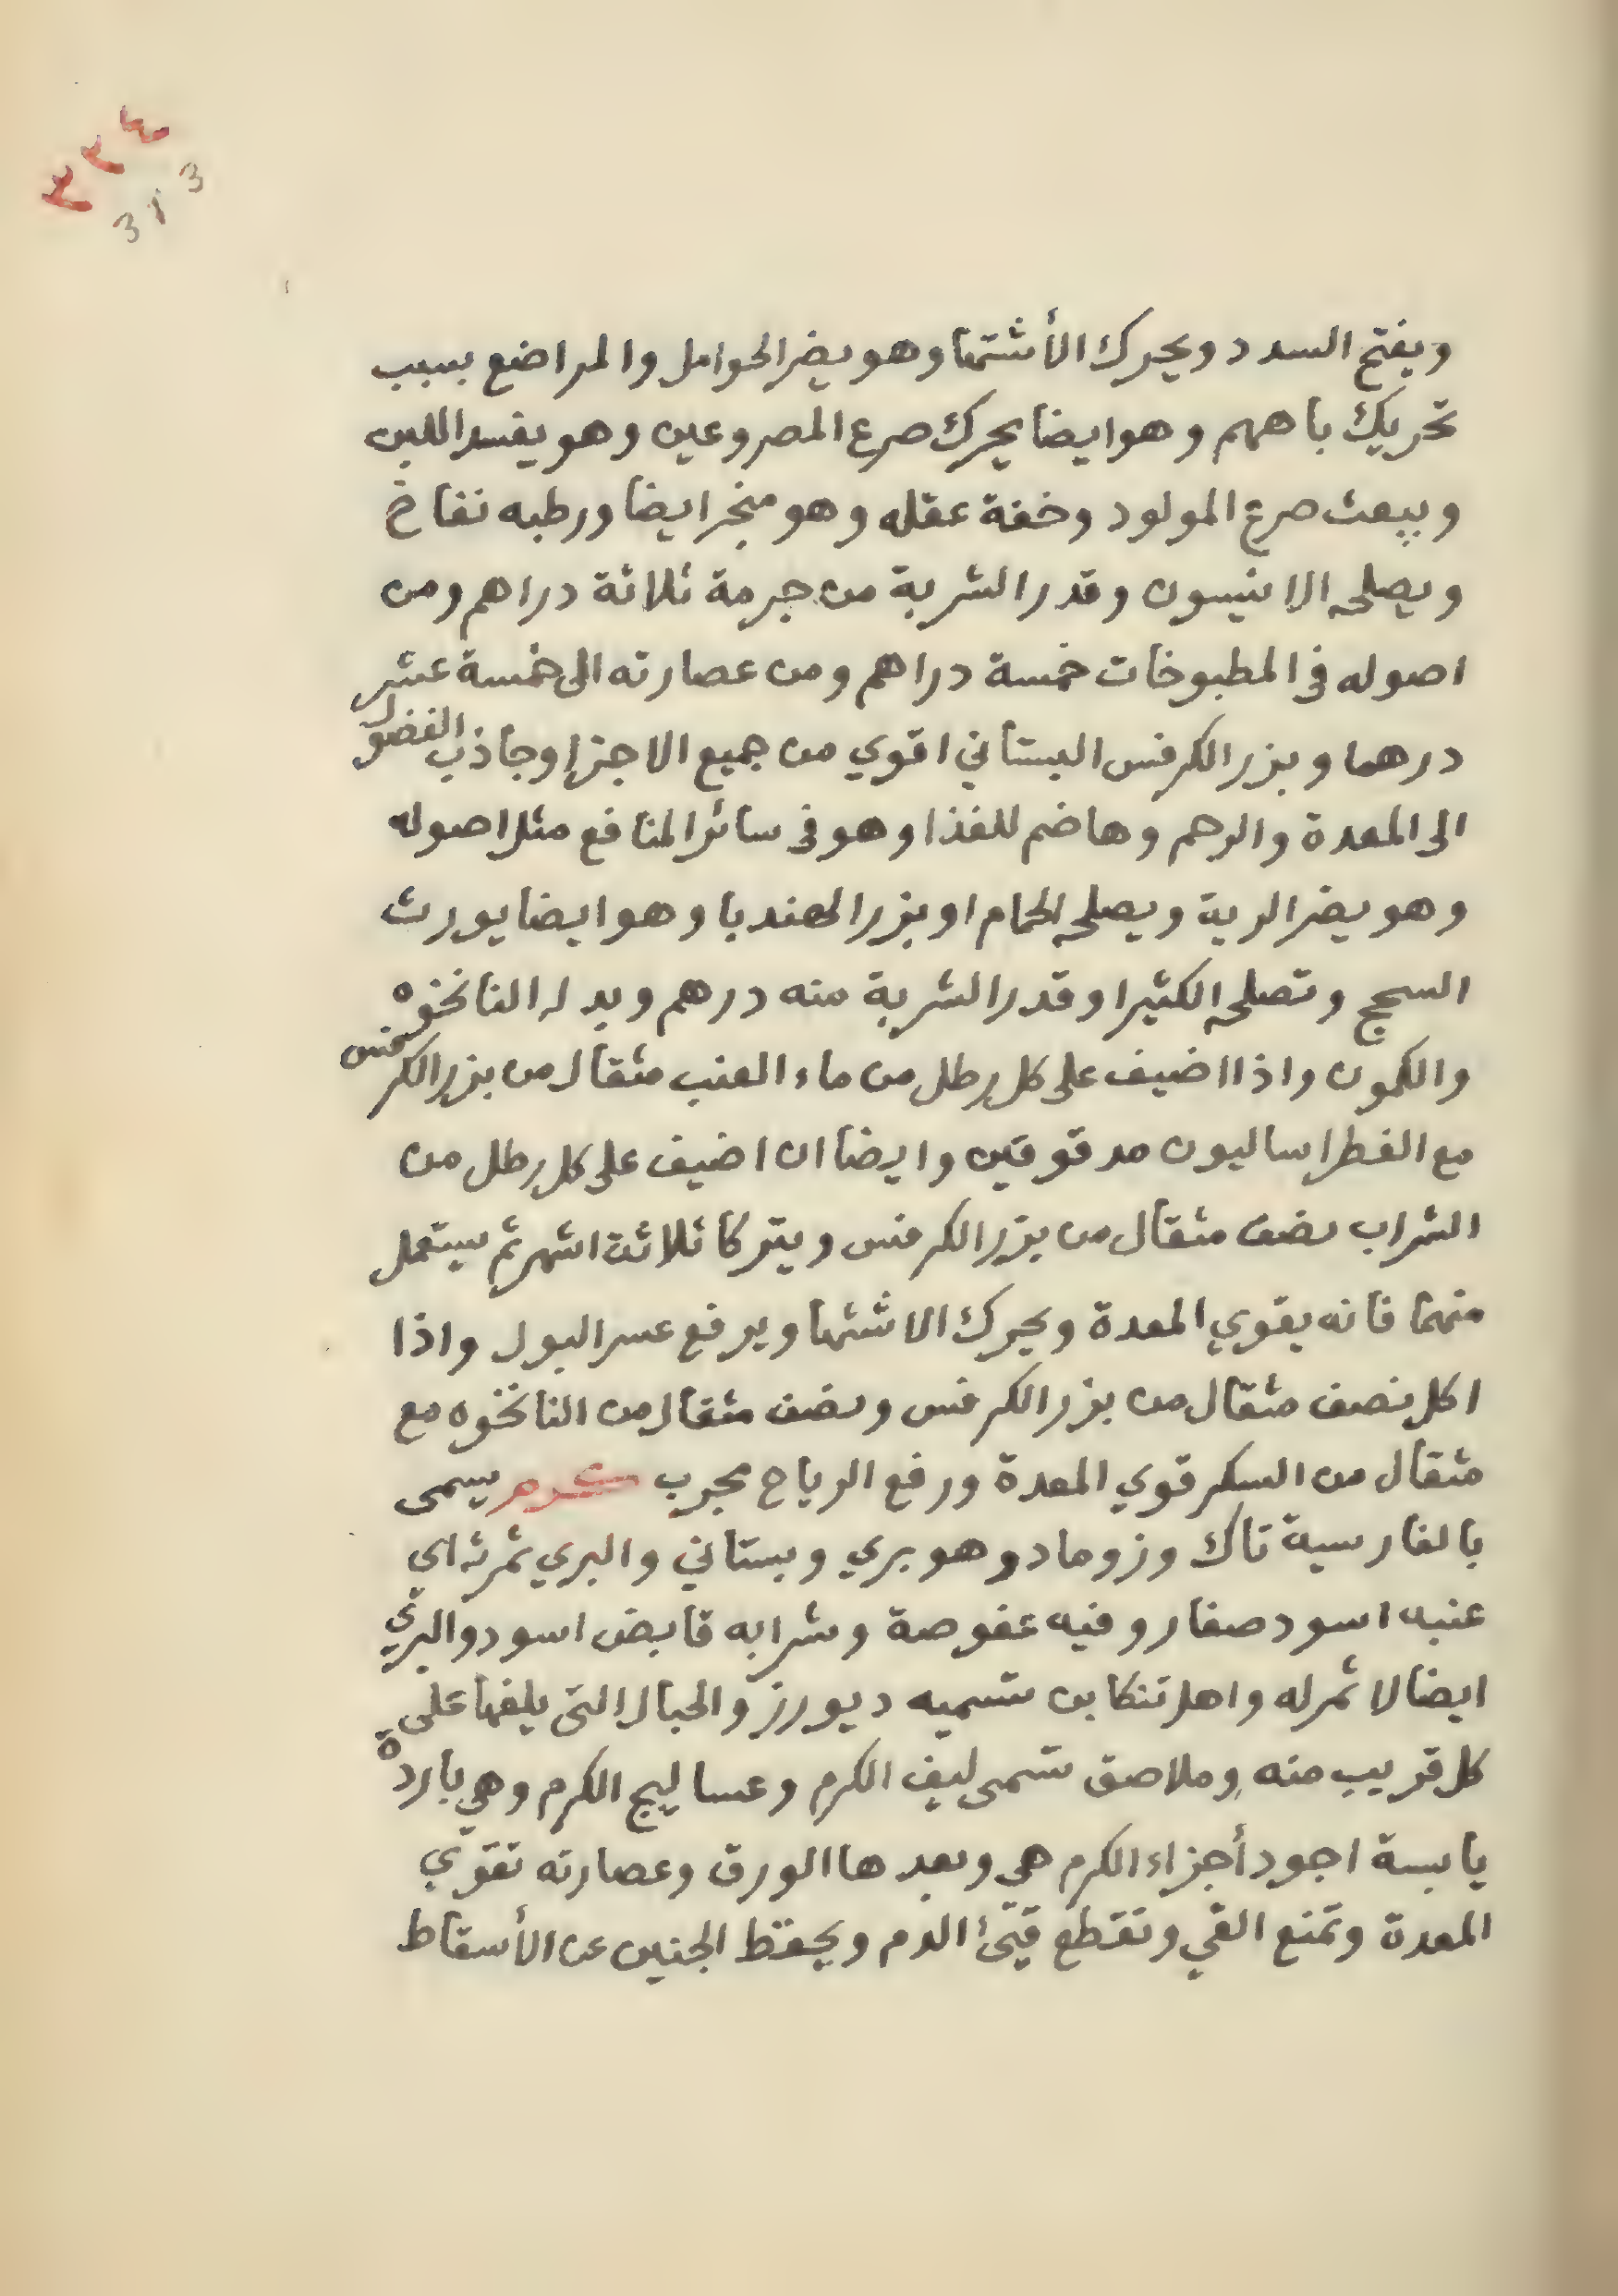 ٣٣٤
313
ويفتح السدد ويحرك الأشتها وهو يضر الحوامل والمراضع بسبب
تحريك باههم وهو ايضا يحرك صرع المصروعين وهو يفسد اللبن
ويبعث صرع المولود وخفة عقله وهو مبخر ايضا ورطبه نفاخ
ويصلحه الانيسون وقدر الشربة من جرمة ثلاثة دراهم ومن
اصوله في المطبوخات خمسة دراهم ومن عصارته الى خمسة عشر
درهما وبزر الكرفس البستاني اقوي من جميع الاجزا وجاذب الفضول
الى المعدة والرحم وهاضم للغذا وهو في سائر المنافع مثل اصوله
وهو يضر الرية ويصلحه الحمام او بزر الهندبا وهو ايضا يورث
السحج وتصلحه الكثيرا وقدر الشربة منه درهم وبدله النانخوه
والكمون واذا اضيف على كل رطل من ماء العنب مثقال من بزر الكرفس
مع الفطراساليون مدقوقين وايضا ان اضيف على كل رطل من
الشراب نصف مثقال من بزر الكرفس ويتركا ثلاثة اشهر ثم يستعمل
منهما فانه يقوي المعدة ويحرك الاشتها ويرفع عسر البول واذا
اكل نصف مثقال من بزر الكرفس ونصف مثقال من النانخوه مع
مثقال من السكر قوي المعدة ورفع الرياح مجرب كرم يسمى
بالفارسية تاك ورزوماد وهو بري وبستاني والبري ثمرته اي
عنبه اسود صغار وفيه عفوصة وشرابه قابض اسود والبري
ايضا لا ثمر له واهل تنكابن تسميه ديورز والحبال التى يلفها على
كل قريب منه وملاصق تسمى ليف الكرم وعساليج الكرم وهي باردة
يابسة اجود أجزاء الكرم هي وبعدها الورق وعصارته تقوّي
المعدة وتمنع القي وتقطع قيئ الدم ويحفظ الجنين عن الأسقاط